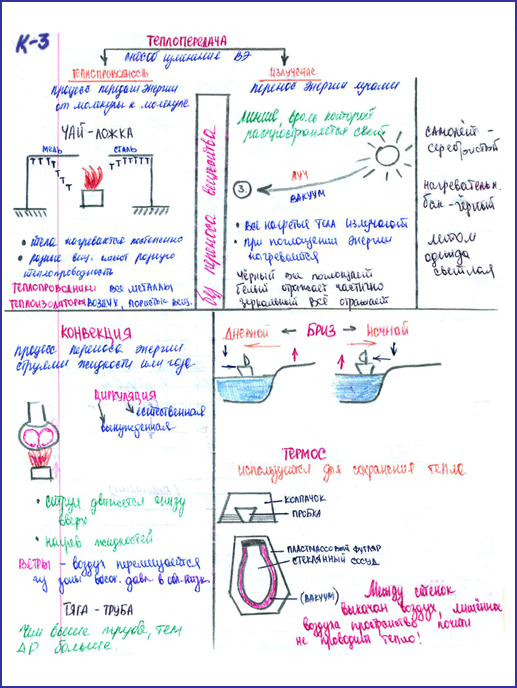 К-3
ТЕПЛОПЕРЕДАЧА
способ изменения ВЭ
ТЕПЛОПРОВОДНОСТЬ
процесс передачи энергии
от молекулы к молекуле
ЧАЙ - ЛОЖКА
МЕДЬ СТАЛЬ
• тела нагреваются постепенно
• разные вещ. имеют разную
теплопроводность
ТЕПЛОПРОВОДНИКИ ВСЕ МЕТАЛЛЫ
ТЕПЛОИЗОЛЯТОРЫ ВОЗДУХ, ПОРИСТЫЕ ВЕЩ.
без переноса вещества
ИЗЛУЧЕНИЕ
перенос энергии лучами
линия, вдоль которой
распространяется свет
З.
ЛУЧ
ВАКУУМ
• все нагретые тела излучают
• при поглощении энергии
нагреваются
чёрный все поглощает
белый отражает частично
зеркальный всё отражает
самолёт -
серебристый
нагревательн.
бак - чёрный
летом
одежда
светлая
КОНВЕКЦИЯ
процесс переноса энергии
струями жидкости или газа
ЦИРКУЛЯЦИЯ
естественная
вынужденная
• струи движется снизу
вверх
• нагрев жидкостей
ВЕТРЫ - воздух перемещается
из зоны высок. давл. в обл. низк.
ТЯГА - ТРУБА
Чем выше труба, тем
ΔР больше.
ДНЕВНОЙ ← БРИЗ → НОЧНОЙ
ТЕРМОС
используется для сохранения тепла
КОЛПАЧОК
ПРОБКА
ПЛАСТМАССОВЫЙ ФУТЛЯР
СТЕКЛЯННЫЙ СОСУД
(ВАКУУМ)
Между стенок
выкачан воздух, лишённое
воздуха пространство почти
не проводит тепло!